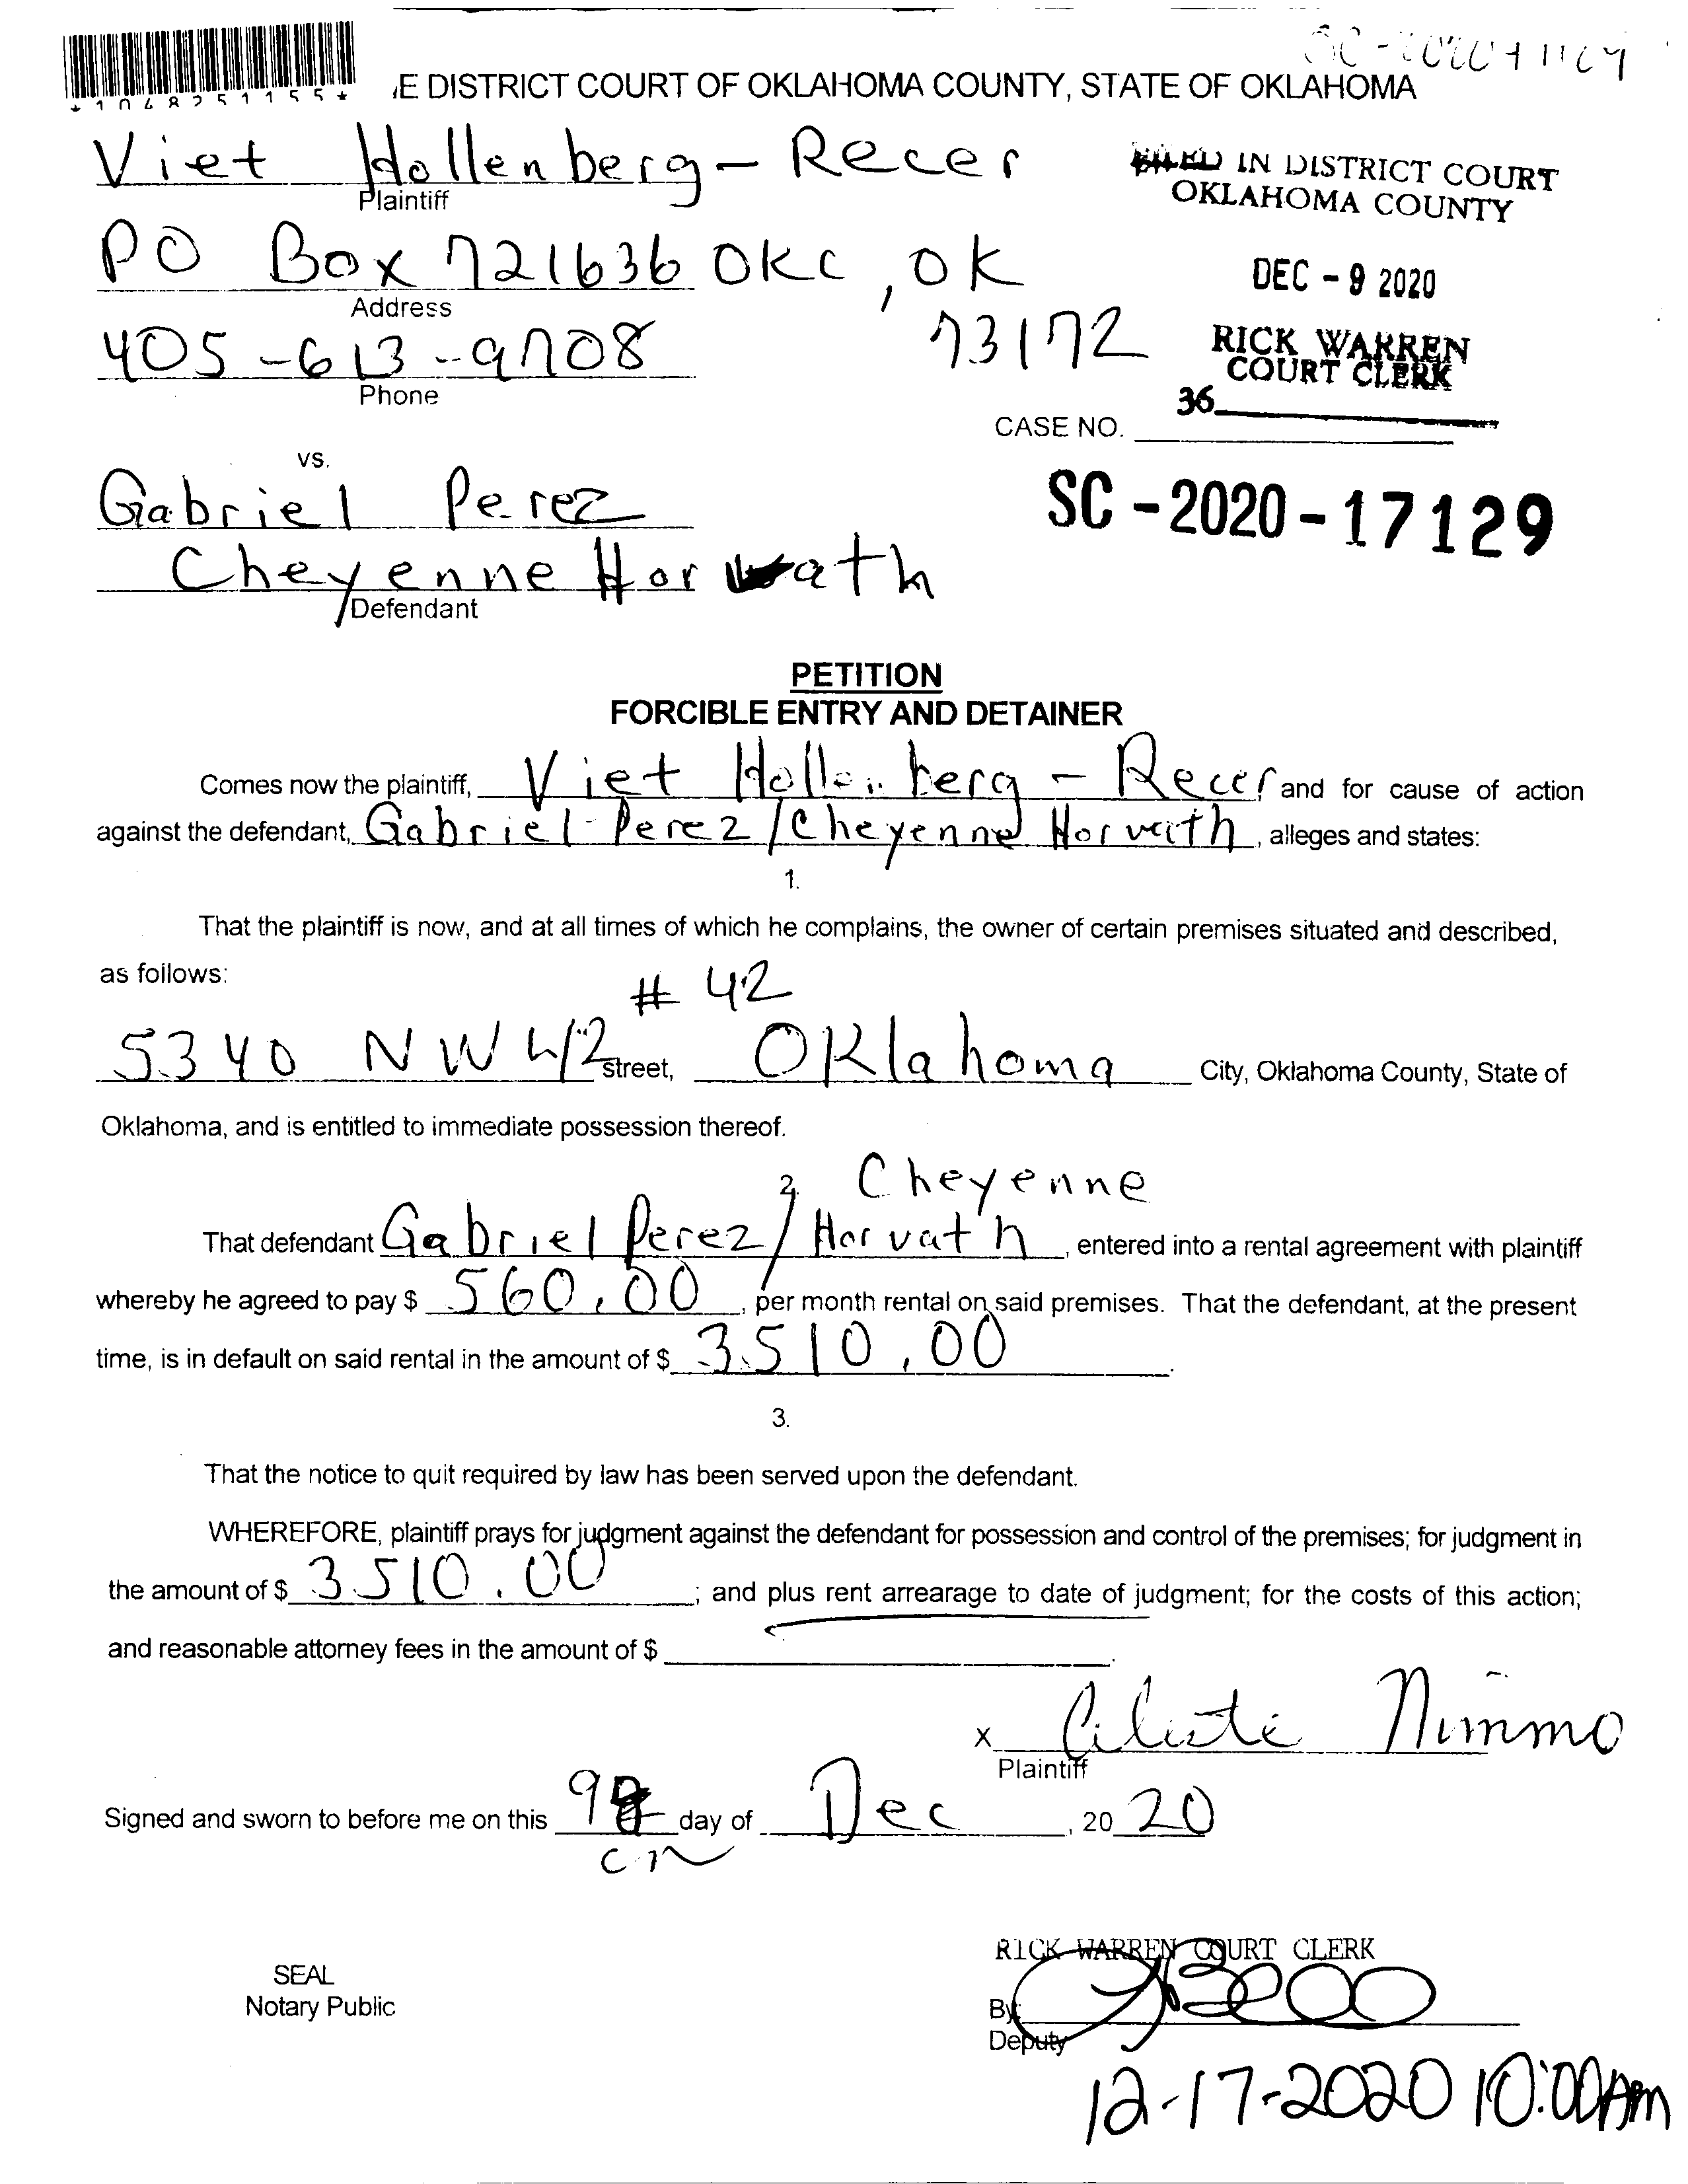 *1048251155*
E DISTRICT COURT OF OKLAHOMA COUNTY, STATE OF OKLAHOMA
Viet Hollenberg-Recer
Plaintiff
FILED IN DISTRICT COURT
OKLAHOMA COUNTY
PO Box 721636 OKC, OK
73172
Address
DEC - 9 2020
405-613-9708
Phone
RICK WARREN
COURT CLERK
36
CASE NO.
vs.
SC-2020-17129
Gabriel Perez
Cheyenne Horvath
Defendant
PETITION
FORCIBLE ENTRY AND DETAINER
Comes now the plaintiff, Viet Hollenberg - Recer and for cause of action
against the defendant, Gabriel Perez/Cheyenne Horvath, alleges and states:
1.
That the plaintiff is now, and at all times of which he complains, the owner of certain premises situated and described,
as follows:
# 42
5340 NW 42 street, Oklahoma City, Oklahoma County, State of
Oklahoma, and is entitled to immediate possession thereof.
2.
Cheyenne
That defendant Gabriel Perez/Horvath, entered into a rental agreement with plaintiff
whereby he agreed to pay $ 560.00, per month rental on said premises. That the defendant, at the present
time, is in default on said rental in the amount of $ 3510.00.
3.
That the notice to quit required by law has been served upon the defendant.
WHEREFORE, plaintiff prays for judgment against the defendant for possession and control of the premises; for judgment in
the amount of $ 3510.00; and plus rent arrearage to date of judgment; for the costs of this action;
and reasonable attorney fees in the amount of $ .
x Celeste Nimmo
Plaintiff
Signed and sworn to before me on this 9 day of Dec, 2020
CN
RICK WARREN COURT CLERK
SEAL
Notary Public
By:
Deputy
12-17-2020 10:00AM